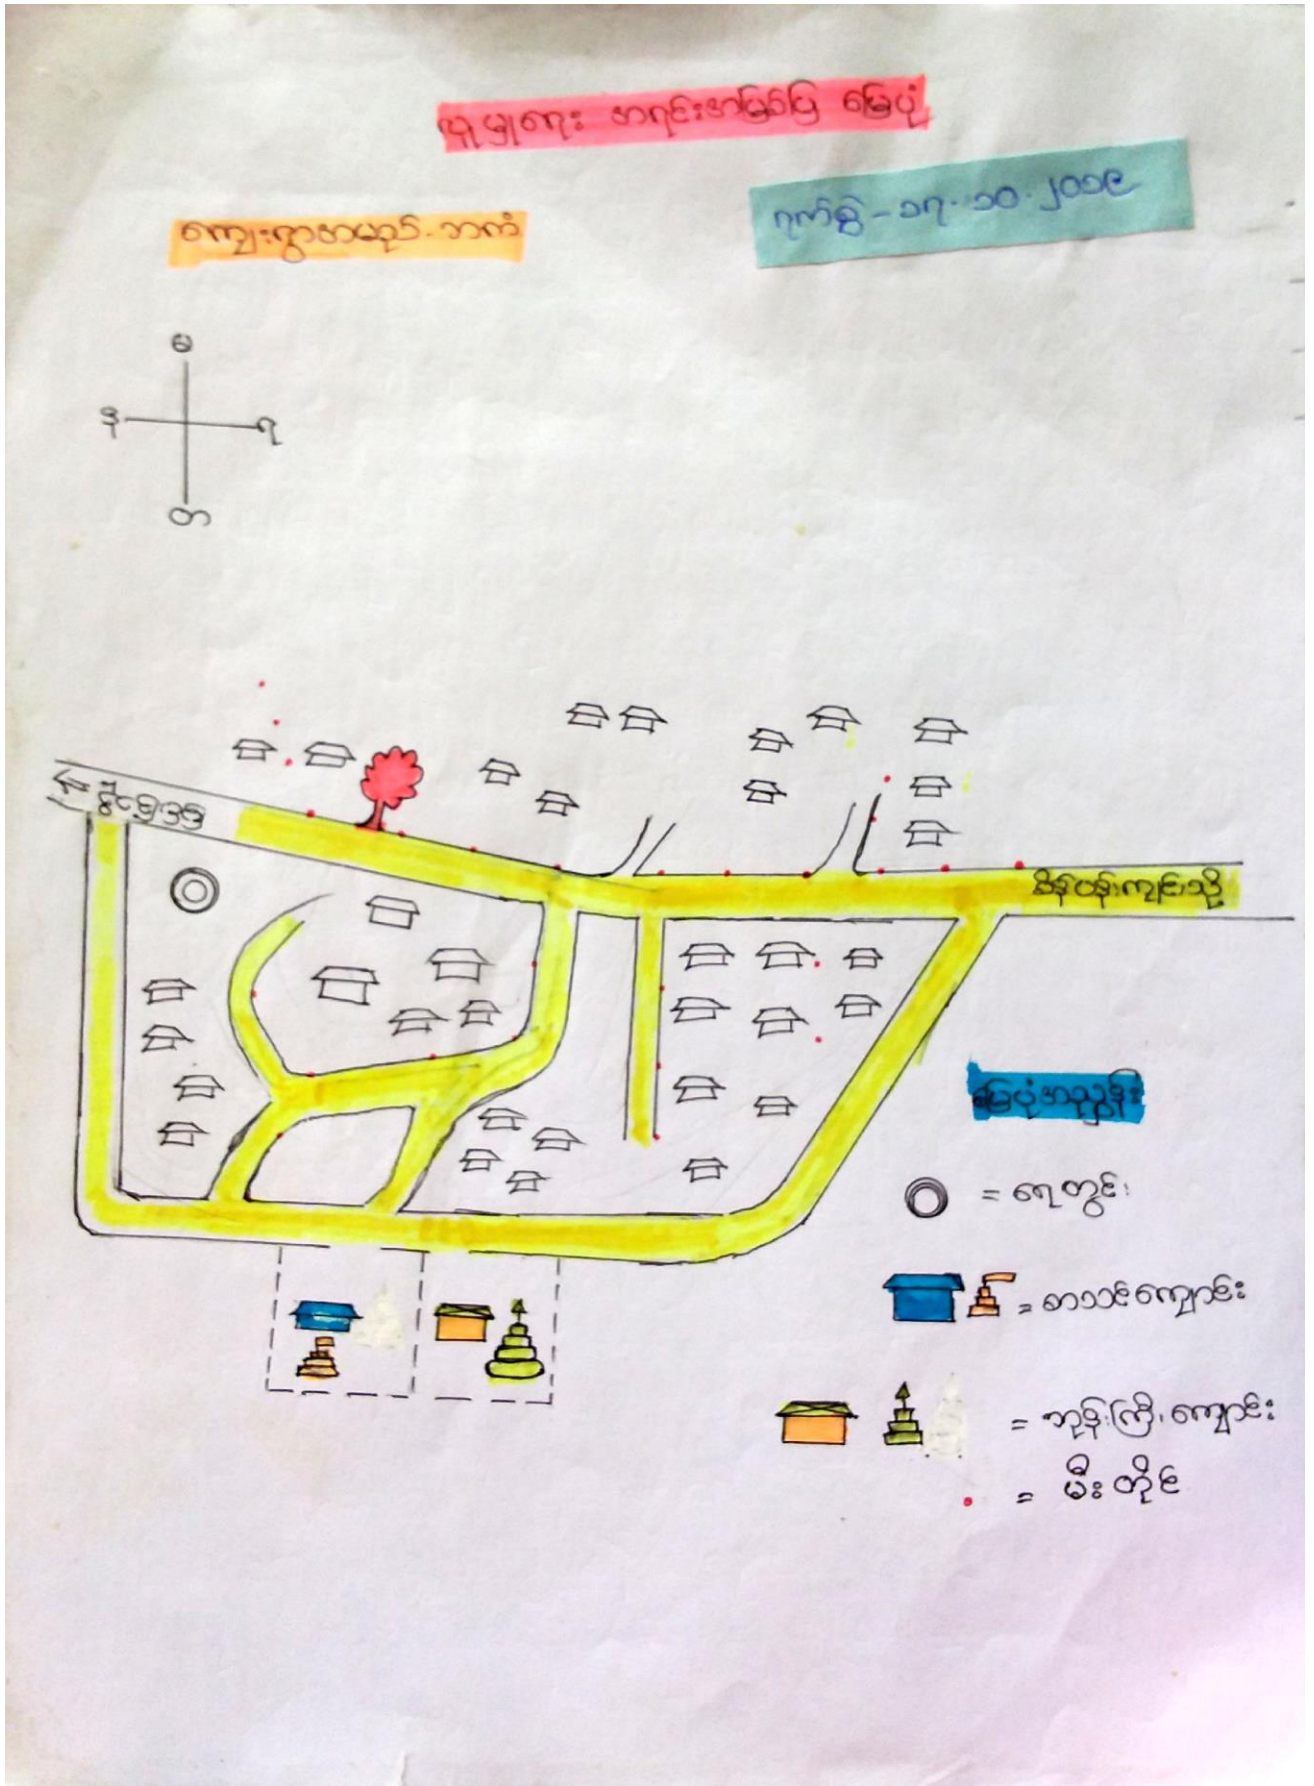 လူမှုရေး အရင်းအမြစ်ပြ မြေပုံ
ရက်စွဲ - ၁၇.၁၀.၂၀၁၉
ကျေးရွာအမည် - ဘကံ
မ
န
ရ
တ
မိန်ပန်းကျင်းသို့
မြေပုံအညွှန်း
= ရေတွင်း
= စာသင်ကျောင်း
= ဘုန်းကြီးကျောင်း
= မီးတိုင်